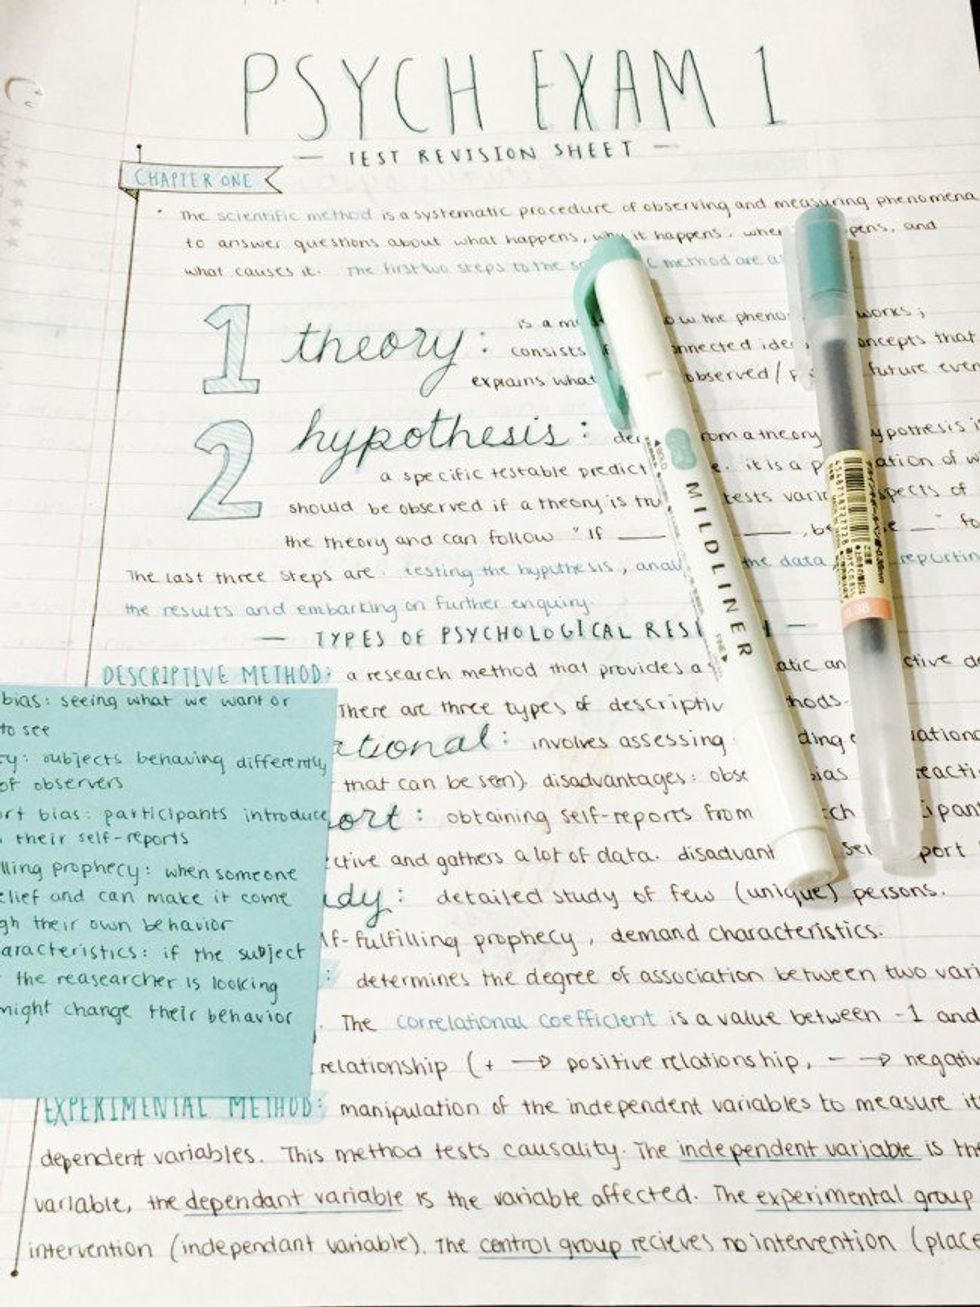 PSYCH EXAM 1
— TEST REVISION SHEET —
CHAPTER ONE
· The scientific method is a systematic procedure of observing and measuring phenomena
to answer questions about what happens, why it happens, when pens, and
what causes it. The first two steps to the method are
1 theory: is a the works;
consists connected concepts that
explains what observed/ future even
2 hypothesis: from a theory hypothesis i
a specific testable predict it is a of w
should be observed if a theory is tru tests spects of
the theory and can follow "If ___ ___, ___" fo
The last three steps are testing the hypothesis, the data reporting
the results and embarking on further enquiry.
— TYPES OF PSYCHOLOGICAL —
DESCRIPTIVE METHOD: a research method that provides a
There are three types of descriptiv hods.
ational: involves assessing ding
that can be seen). disadvantages: obse bias reacti
ort: obtaining self-reports from ch ipan
ctive and gathers a lot of data. disadvant sel port
dy: detailed study of few (unique) persons.
lf-fulfilling prophecy, demand characteristics.
: determines the degree of association between two vari
. The correlational coefficient is a value between -1 and
relationship (+ → positive relationship, - → negativ
EXPERIMENTAL METHOD: manipulation of the independent variables to measure it
dependent variables. This method tests causality. The independent variable is th
variable, the dependant variable is the variable affected. The experimental group
intervention (independant variable). The control group recieves no intervention (place
bias: seeing what we want or
to see
ty: subjects behaving differently
of observers
ort bias: participants introduce
their self-reports
lling prophecy: when someone
elief and can make it come
gh their own behavior
aracteristics: if the subject
the reasearcher is looking
might change their behavior
MILDLINER
BOLD
FINE
0.38